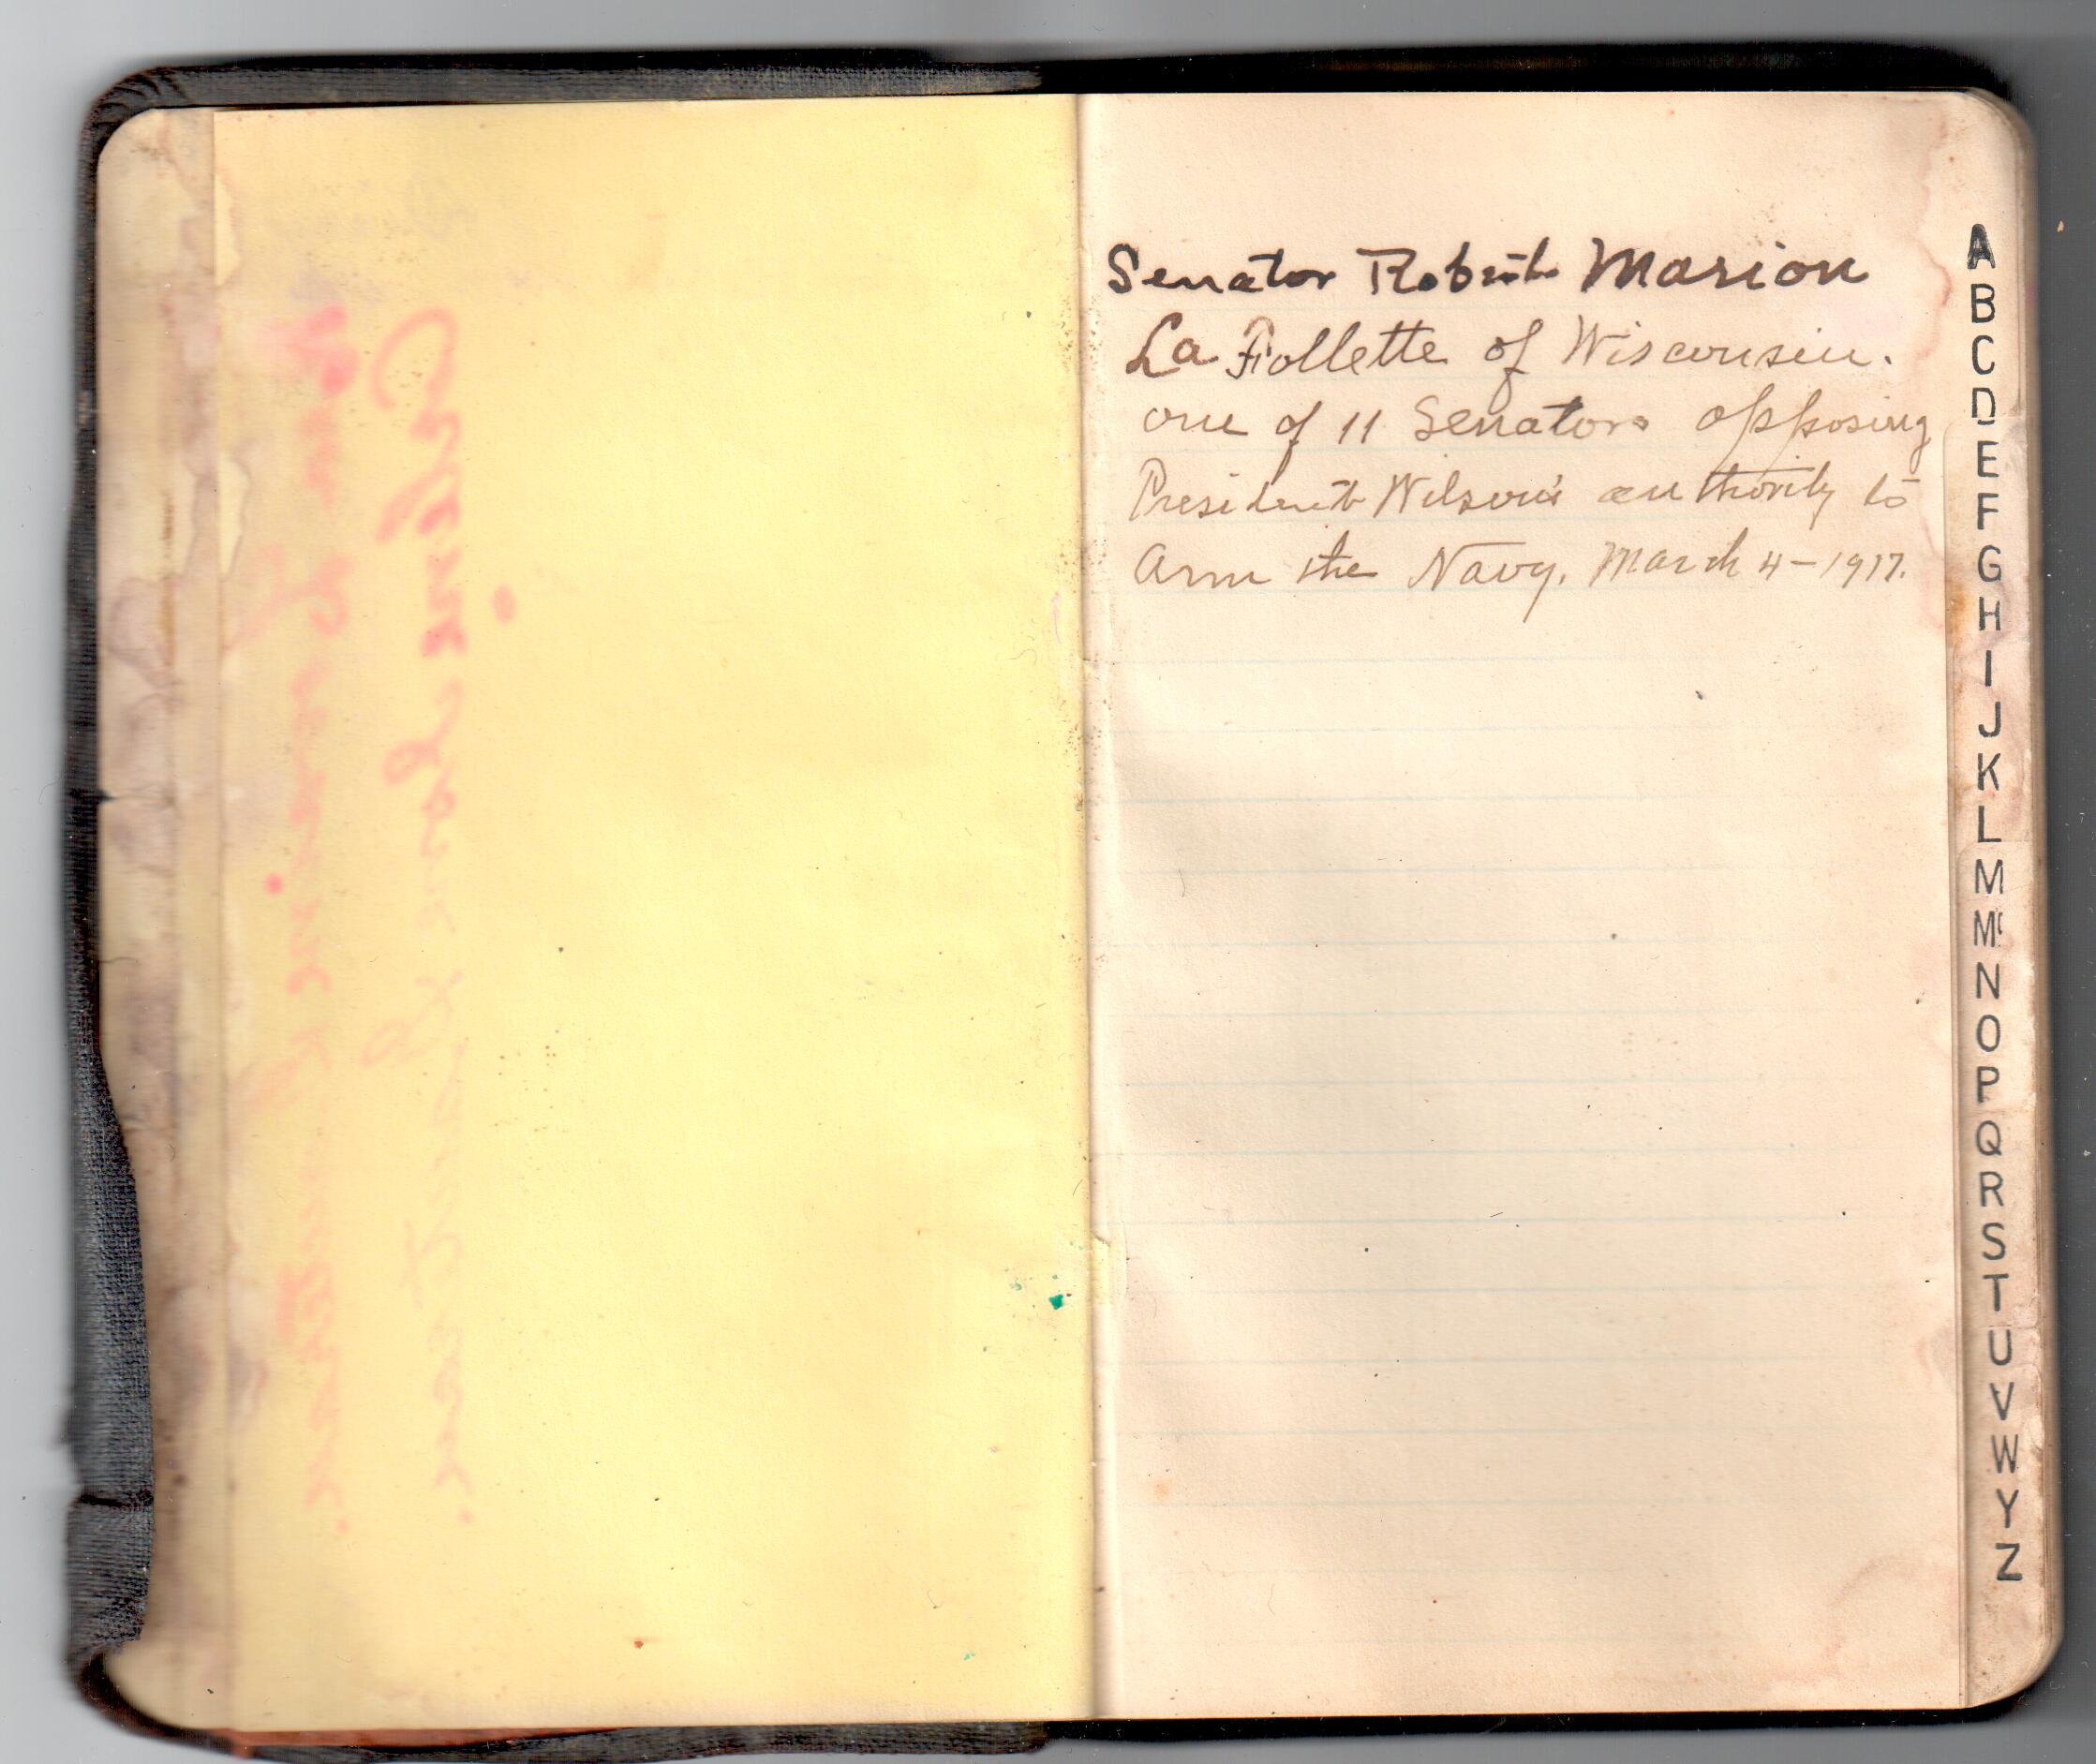 Senator Robert Marion
La Follette of Wisconsin.
one of 11 Senators opposing
President Wilson's authority to
Arm the Navy. March 4-1917.
A
B
C
D
E
F
G
H
I
J
K
L
M
Mc
N
O
P
Q
R
S
T
U
V
W
Y
Z